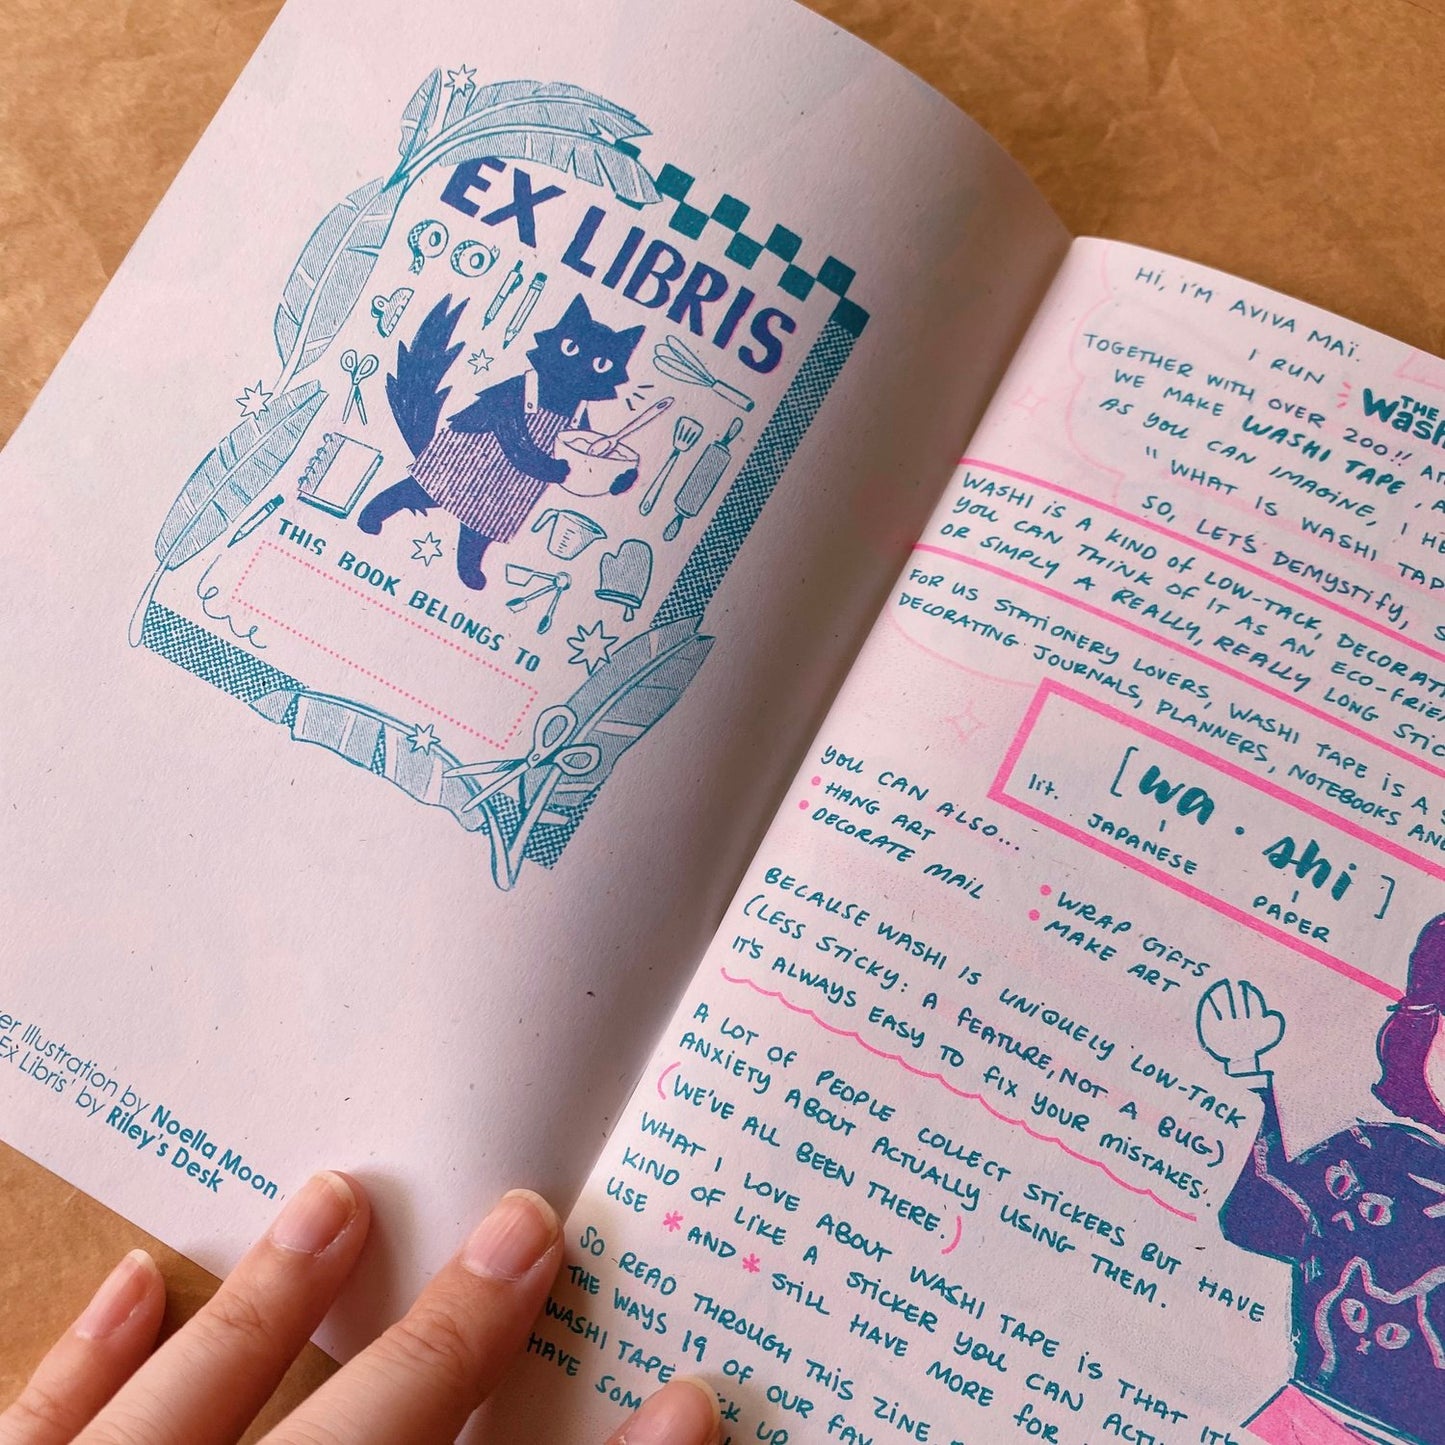 EX LIBRIS
THIS BOOK BELONGS TO
Illustration by Noella Moon
Ex Libris' by Riley's Desk
HI, I'M AVIVA MAÏ.
I RUN THE
TOGETHER WITH OVER 200!!
WE MAKE WASHI TAPE,
AS YOU CAN IMAGINE, I
"WHAT IS WASHI
SO, LET'S DEMYSTIFY,
WASHI IS A KIND OF LOW-TACK,
YOU CAN THINK OF IT AS AN
OR SIMPLY A REALLY, REALLY LONG
FOR US STATIONERY LOVERS, WASHI TAPE IS A
DECORATING JOURNALS, PLANNERS, NOTEBOOKS
[wa · shi]
lit. JAPANESE PAPER
YOU CAN ALSO...
• HANG ART
• DECORATE MAIL
• WRAP GIFTS
• MAKE ART
BECAUSE WASHI IS UNIQUELY LOW-TACK
(LESS STICKY: A FEATURE, NOT A BUG)
IT'S ALWAYS EASY TO FIX YOUR MISTAKES.
A LOT OF PEOPLE COLLECT STICKERS BUT HAVE
ANXIETY ABOUT ACTUALLY USING THEM.
(WE'VE ALL BEEN THERE.)
WHAT I LOVE ABOUT WASHI TAPE IS THAT IT'S
KIND OF LIKE A STICKER YOU CAN
USE *AND* STILL HAVE MORE FOR
SO READ THROUGH THIS ZINE
THE WAYS 19 OF OUR
WASHI TAPE UP
HAVE